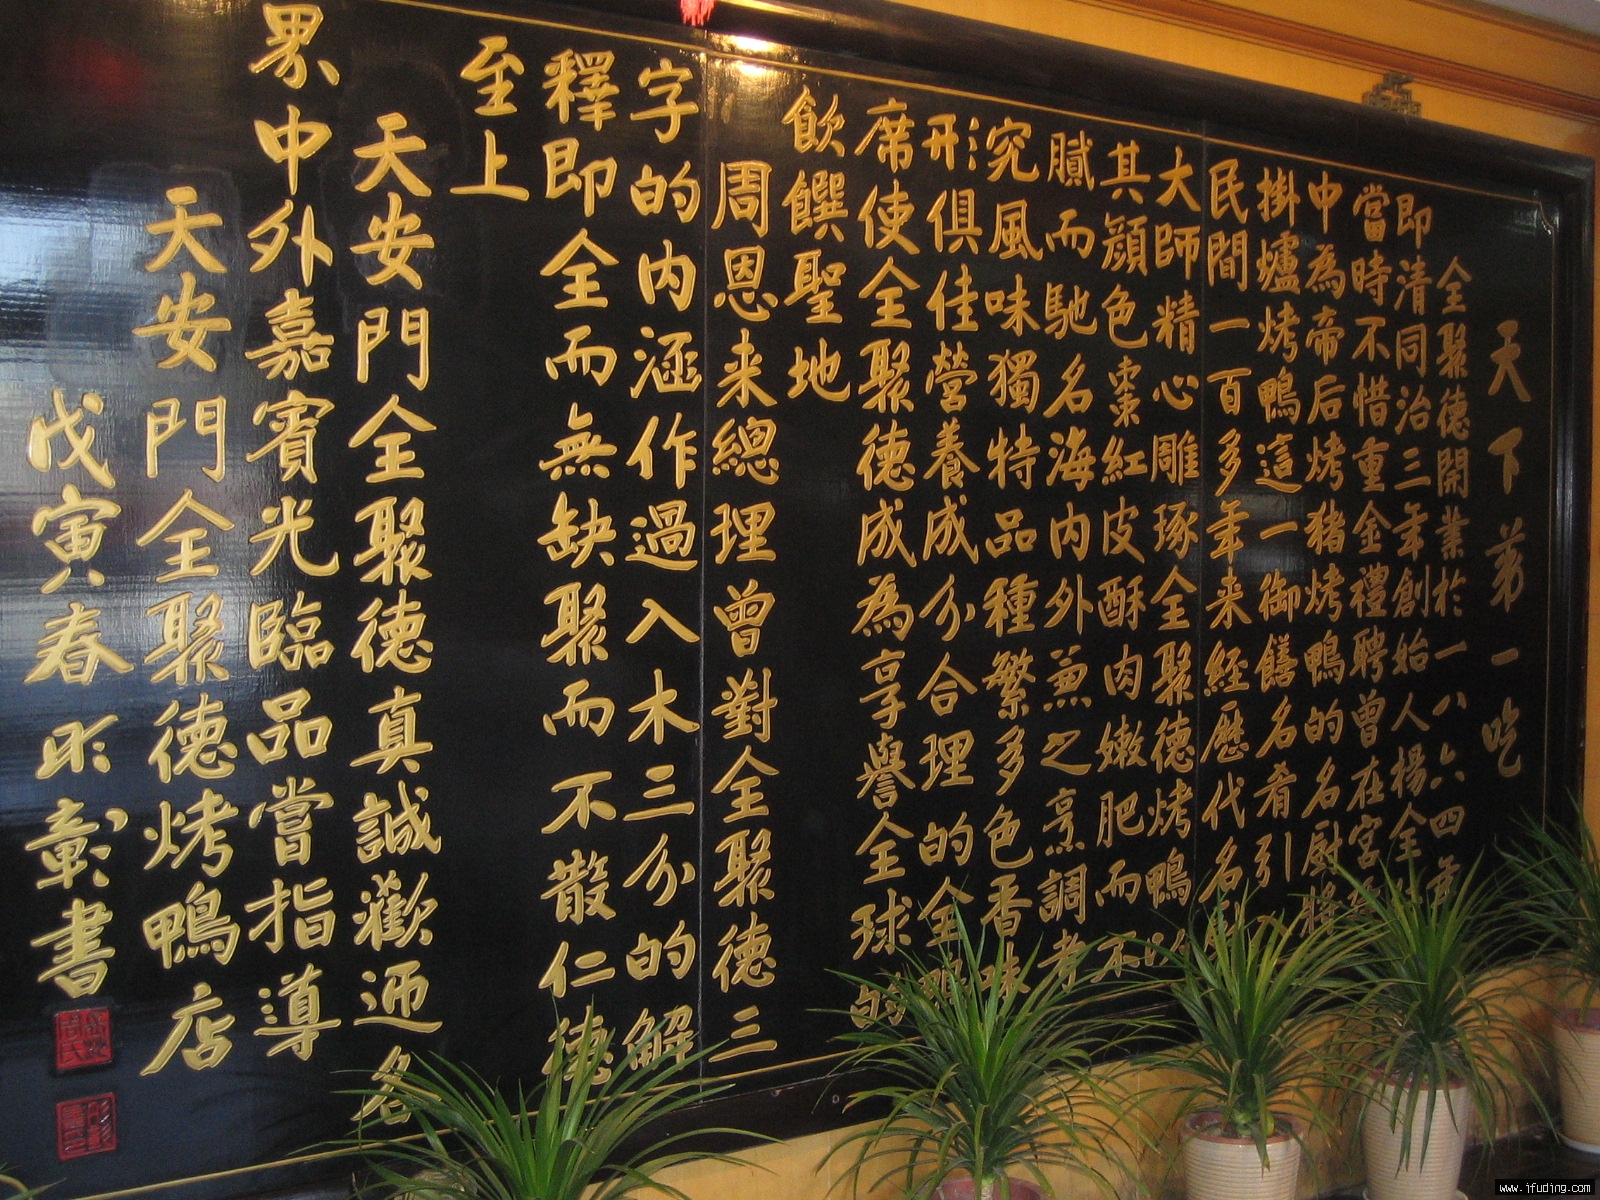 天下第一吃
全聚德開業於一八六四年
即清同治三年創始人楊全
當時不惜重金禮聘曾在宮
中為帝后烤豬烤鴨的名厨將
掛爐烤鴨這一御饍名肴引入
民間一百多年来経歷代名
大師精心雕琢全聚德烤鴨
其顔色棗紅皮酥肉嫩肥而不
膩而馳名海内外兼之烹調考
究風味獨特品種繁多色香味
形俱佳營養成分合理的全鴨
席使全聚德成為享譽全球的
飲饌聖地
周恩来總理曾對全聚德三
字的内涵作過入木三分的解
釋即全而無缺聚而不散仁德
至上
天安門全聚德真誠歡迊名
界中外嘉賓光臨品嘗指導
天安門全聚德烤鴨店
戊寅春 彰書
www.jfuding.com